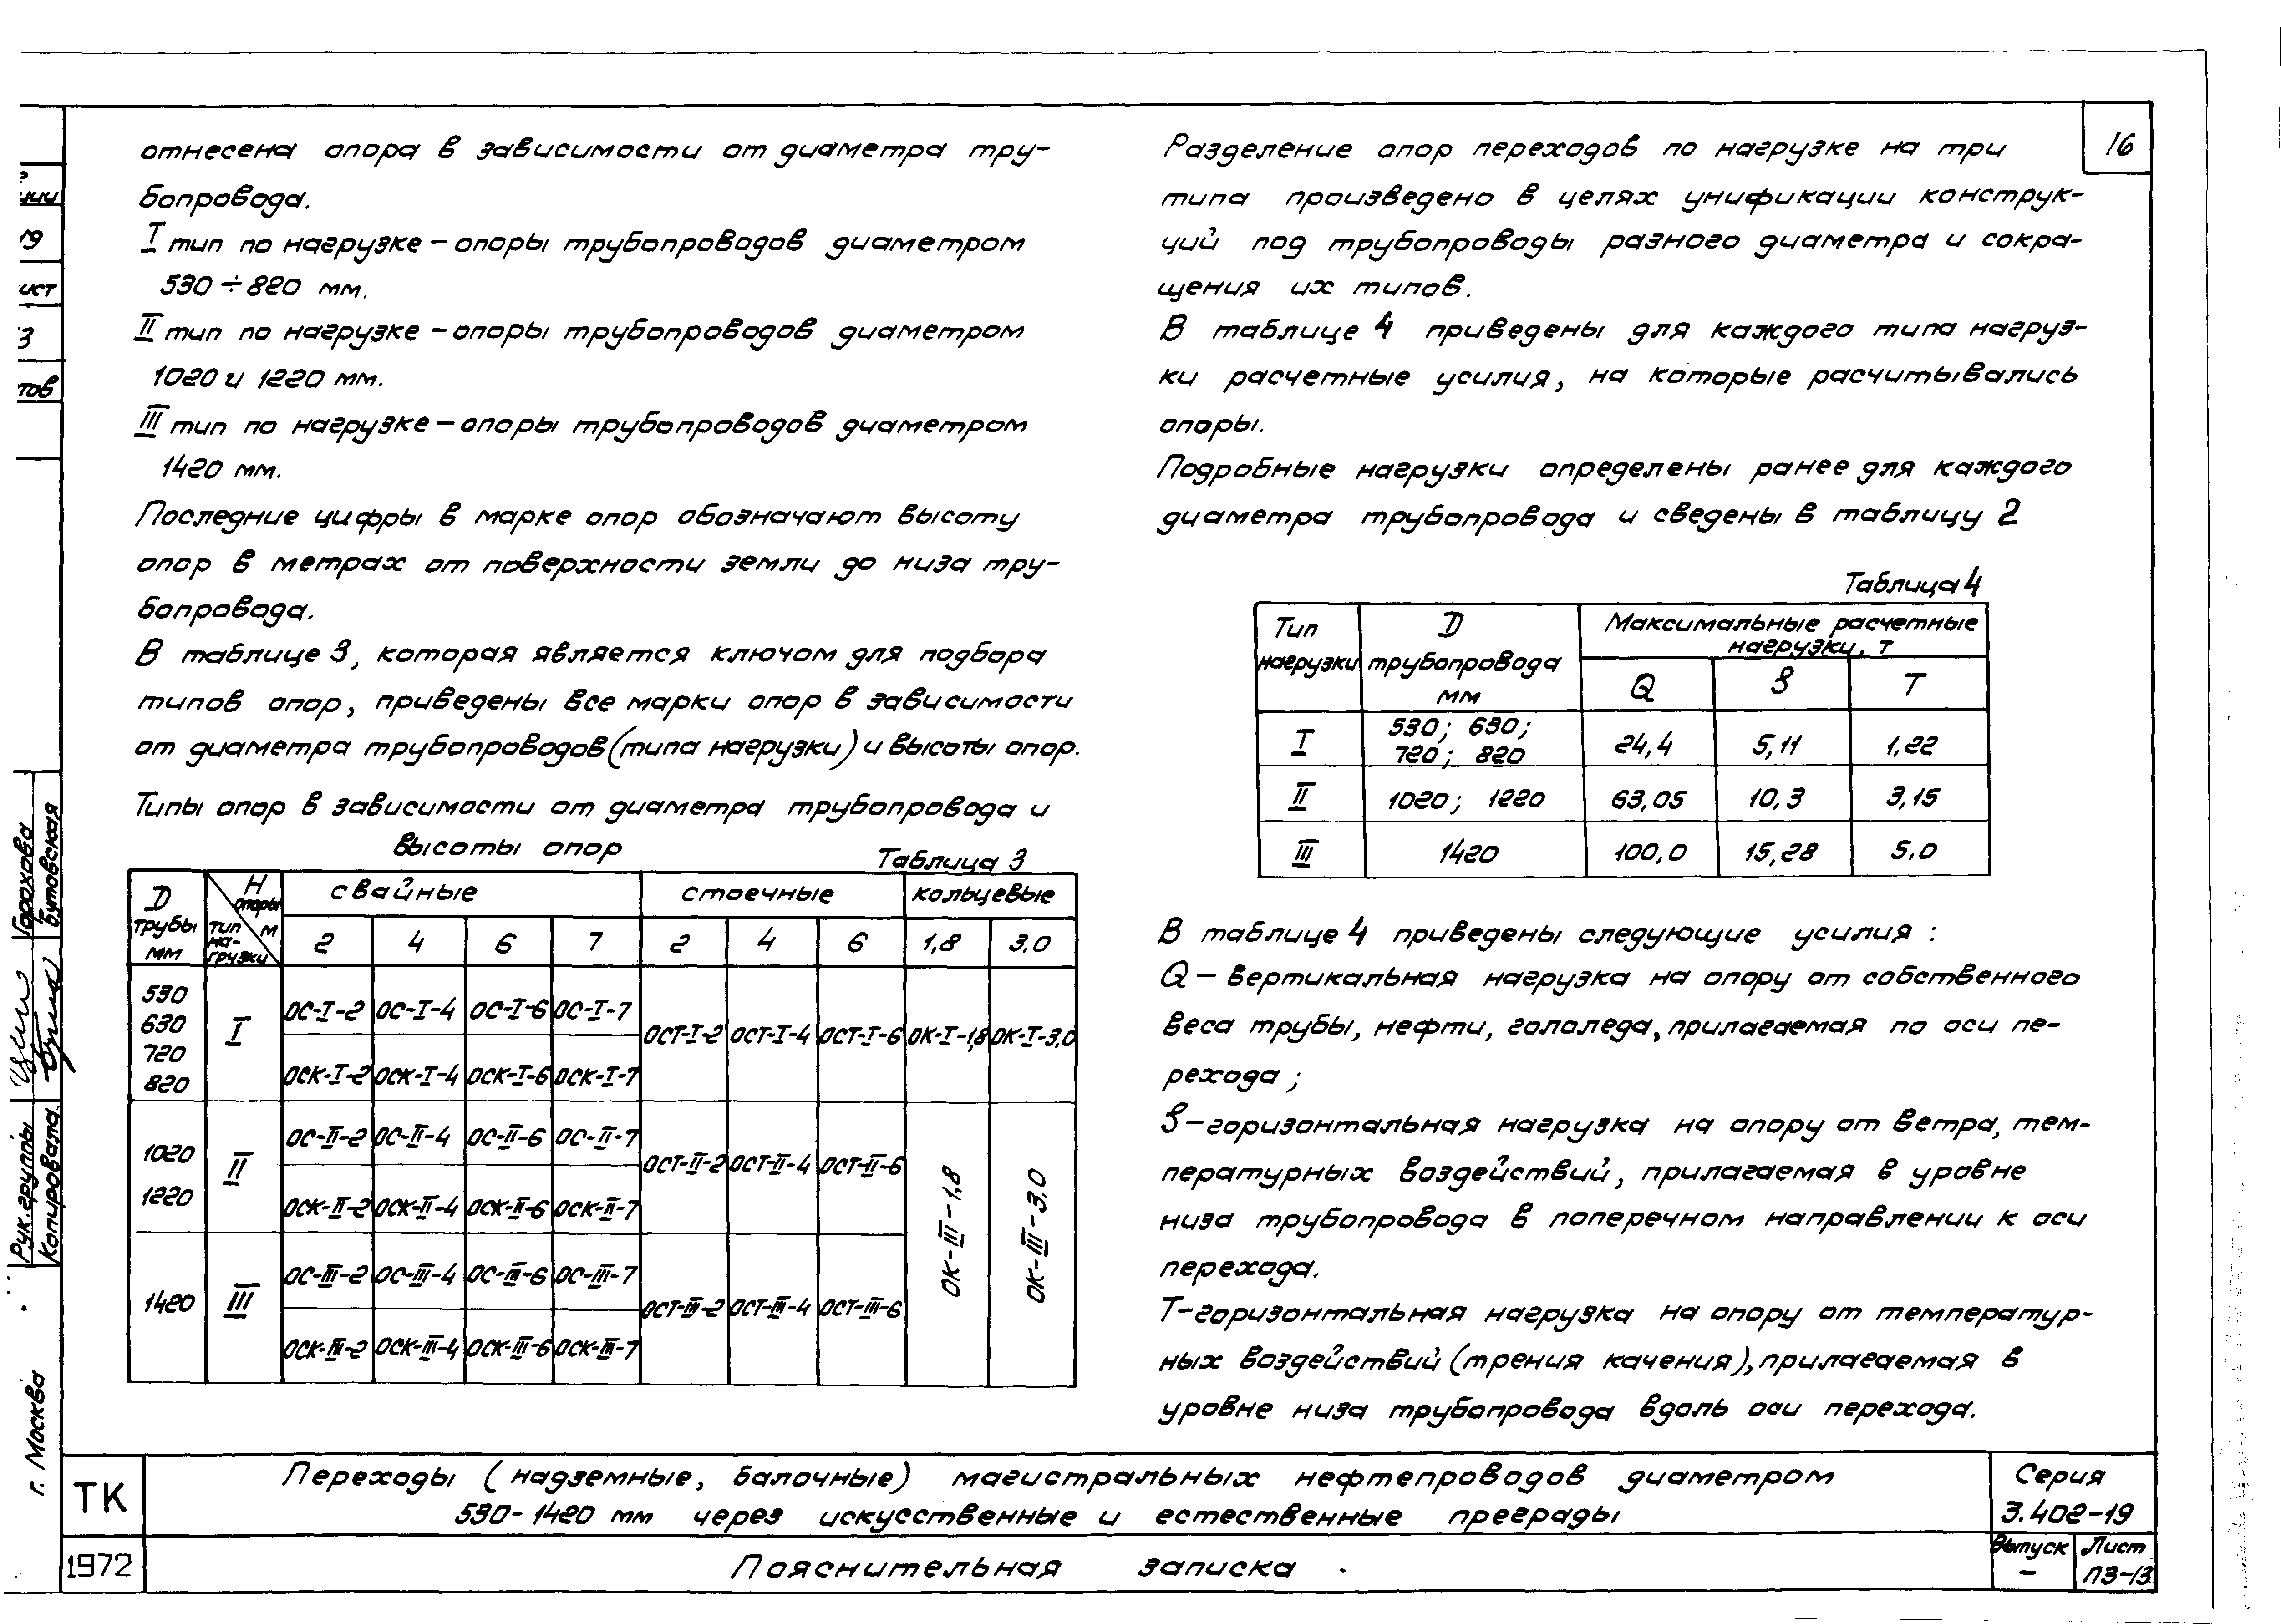 16
отнесена опора в зависимости от диаметра тру-
бопровода.
I тип по нагрузке – опоры трубопроводов диаметром
530 ÷ 820 мм.
II тип по нагрузке – опоры трубопроводов диаметром
1020 и 1220 мм.
III тип по нагрузке – опоры трубопроводов диаметром
1420 мм.
Последние цифры в марке опор обозначают высоту
опор в метрах от поверхности земли до низа тру-
бопровода.
В таблице 3, которая является ключом для подбора
типов опор, приведены все марки опор в зависимости
от диаметра трубопроводов (типа нагрузки) и высоты опор.
Типы опор в зависимости от диаметра трубопровода и
высоты опор
Таблица 3
D трубы мм | H опоры м / тип на-грузки | свайные | стоечные | кольцевые
2 | 4 | 6 | 7 | 2 | 4 | 6 | 1,8 | 3,0
530 630 720 820 | I | ОС-I-2 | ОС-I-4 | ОС-I-6 | ОС-I-7 | ОСТ-I-2 | ОСТ-I-4 | ОСТ-I-6 | ОК-I-1,8 | ОК-I-3,0
ОСК-I-2 | ОСК-I-4 | ОСК-I-6 | ОСК-I-7
1020 1220 | II | ОС-II-2 | ОС-II-4 | ОС-II-6 | ОС-II-7 | ОСТ-II-2 | ОСТ-II-4 | ОСТ-II-6 | ОК-III-1,8 | ОК-III-3,0
ОСК-II-2 | ОСК-II-4 | ОСК-II-6 | ОСК-II-7
1420 | III | ОС-III-2 | ОС-III-4 | ОС-III-6 | ОС-III-7 | ОСТ-III-2 | ОСТ-III-4 | ОСТ-III-6
ОСК-III-2 | ОСК-III-4 | ОСК-III-6 | ОСК-III-7
Разделение опор переходов по нагрузке на три
типа произведено в целях унификации конструк-
ций под трубопроводы разного диаметра и сокра-
щения их типов.
В таблице 4 приведены для каждого типа нагруз-
ки расчетные усилия, на которые расчитывались
опоры.
Подробные нагрузки определены ранее для каждого
диаметра трубопровода и сведены в таблицу 2
Таблица 4
Тип нагрузки | D трубопровода мм | Максимальные расчетные нагрузки, т
Q | S | T
I | 530; 630; 720; 820 | 24,4 | 5,11 | 1,22
II | 1020; 1220 | 63,05 | 10,3 | 3,15
III | 1420 | 100,0 | 15,28 | 5.0
В таблице 4 приведены следующие усилия :
Q – вертикальная нагрузка на опору от собственного
веса трубы, нефти, гололеда, прилагаемая по оси пе-
рехода ;
S – горизонтальная нагрузка на опору от ветра, тем-
пературных воздействий, прилагаемая в уровне
низа трубопровода в поперечном направлении к оси
перехода.
Т – горизонтальная нагрузка на опору от температур-
ных воздействий (трения качения), прилагаемая в
уровне низа трубопровода вдоль оси перехода.
Рук. группы Горохова
Копировала Бутовская
г. Москва
ТК
1972
Переходы (надземные, балочные) магистральных нефтепроводов диаметром
530-1420 мм через искусственные и естественные преграды
Пояснительная записка
Серия
3.402-19
Выпуск
–
Лист
ПЗ-13